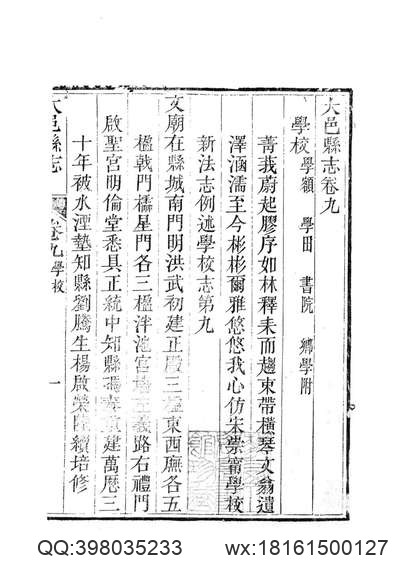 大邑縣志卷九
學校 學額 學田 書院 鄉學附
菁莪蔚起膠序如林釋耒而趨束帶橫琴文翁遺
澤涵濡至今彬彬爾雅悠悠我心仿宋崇甯學校
新法志例述學校志第九
文廟在縣城南門明洪武初建正殿三楹東西廡各五
楹戟門櫺星門各三楹泮池宮 義路右禮門
啟聖宮明倫堂悉具正統中知縣 建萬歷三
十年被水湮墊知縣劉騰生楊啟榮 續培修
大邑縣志 卷九 學校 一
QQ:398035233 wx:18161500127